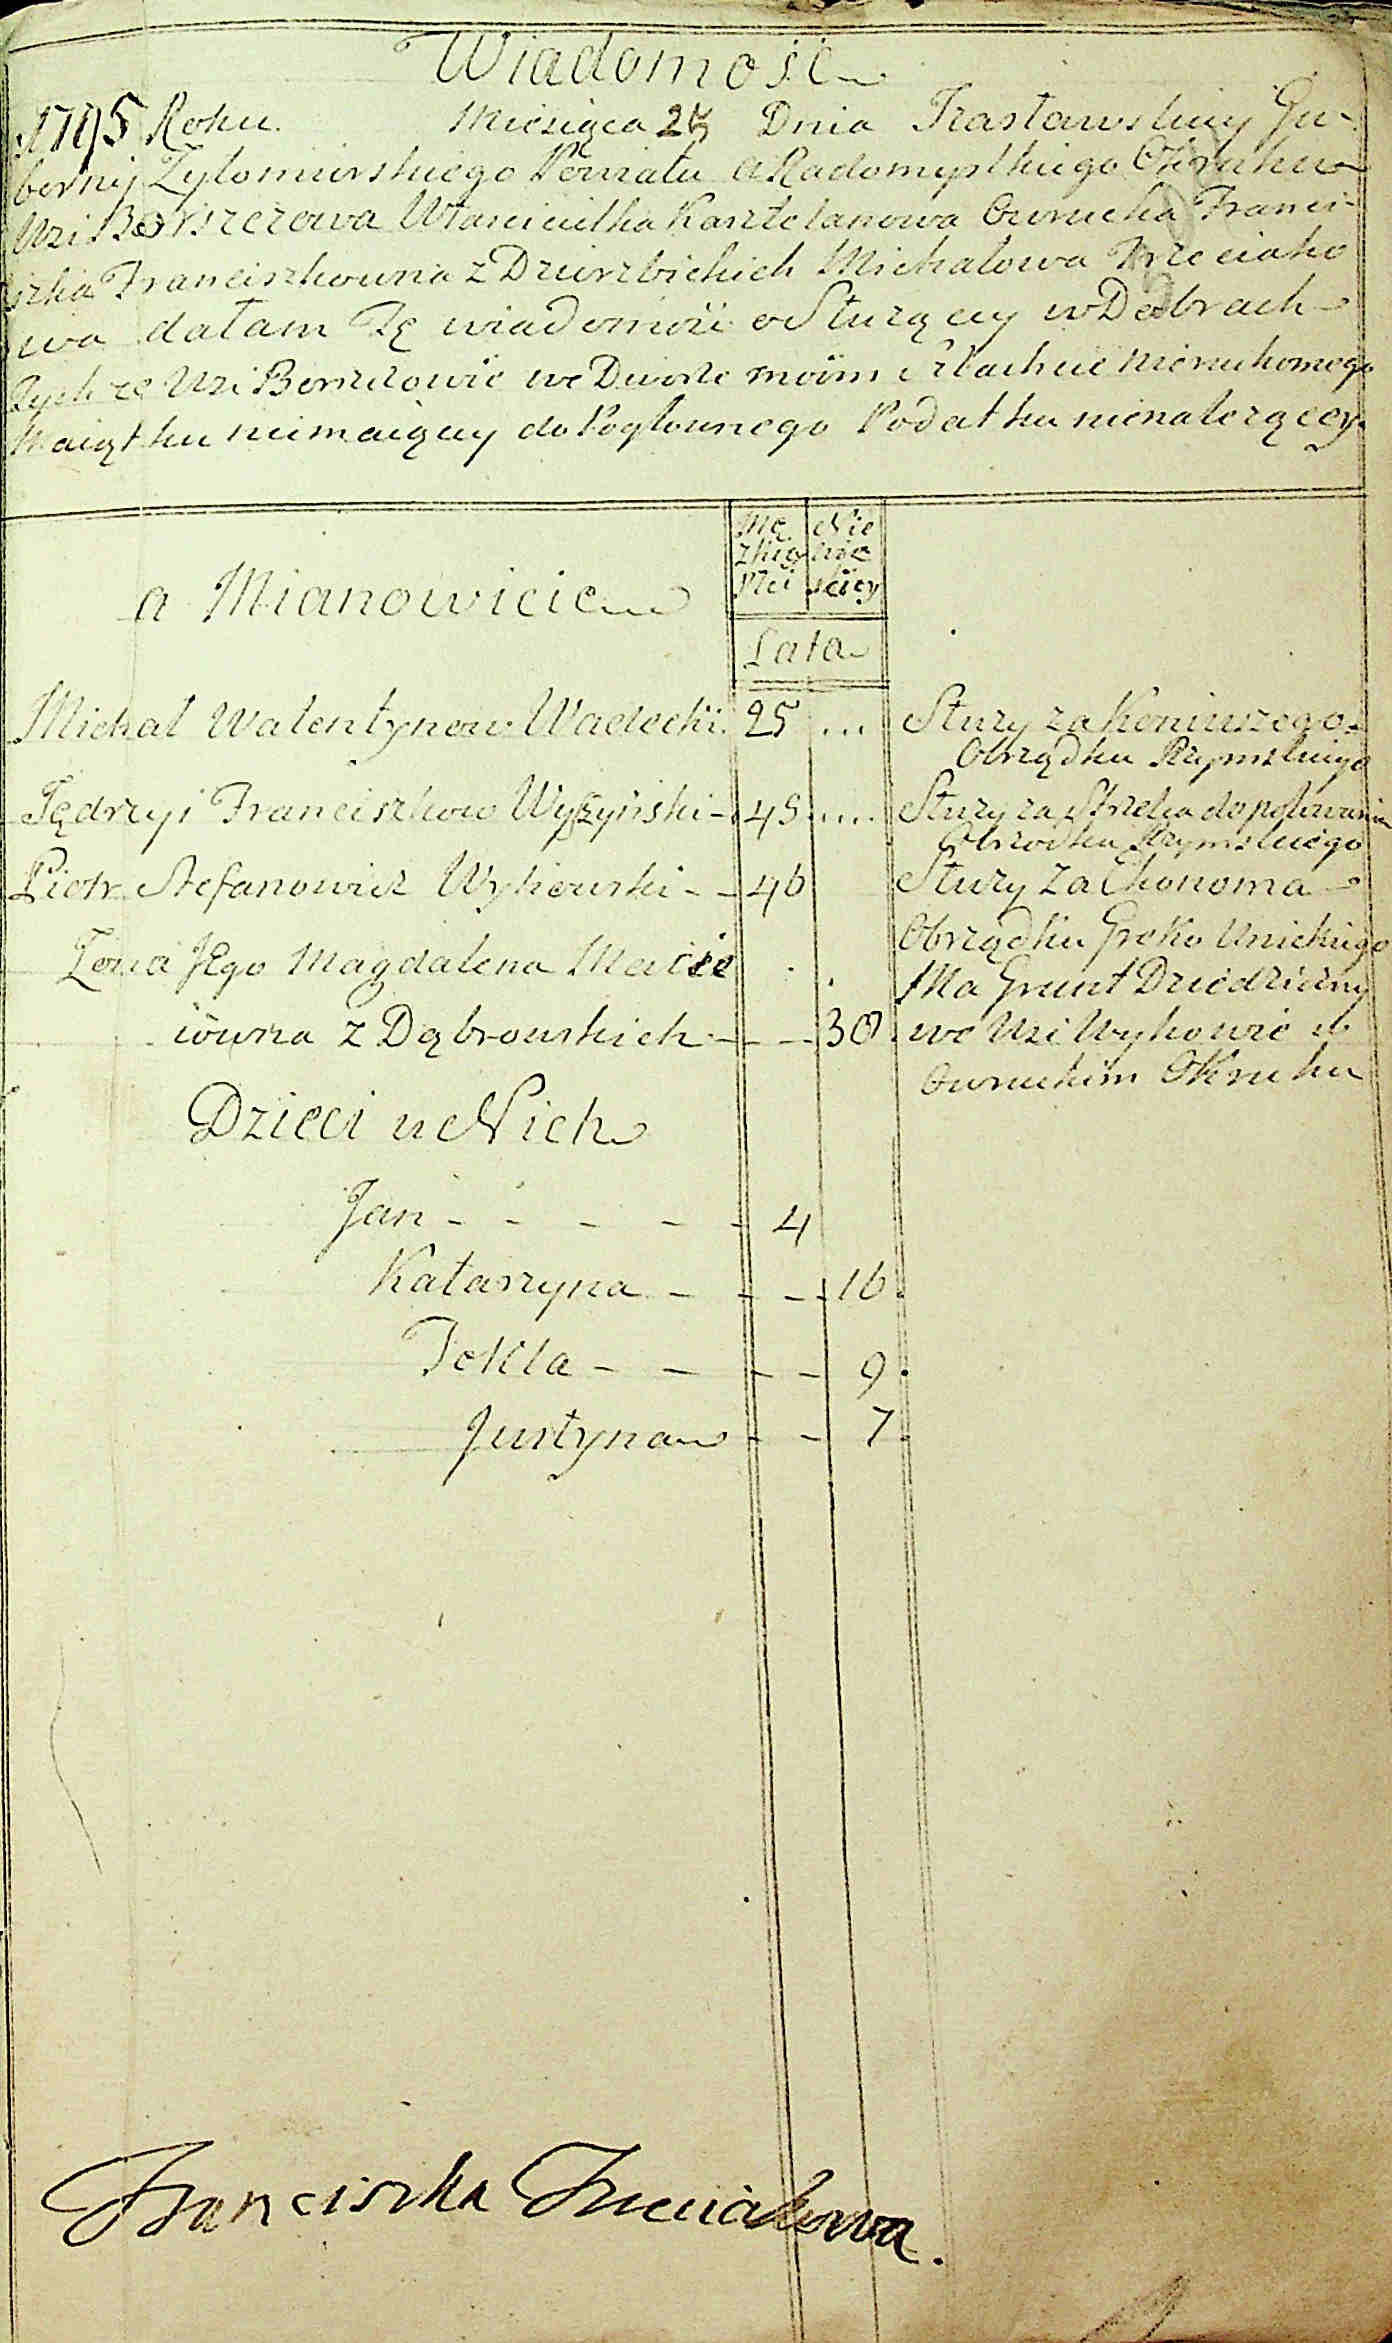 Wiadomość
1795 Roku. Miesiąca 25 Dnia Izasławskiey Gu-
bernij Zytomierskiego Powiatu a Radomyslkiego Okruhu
Wsi Borszczowa Właścicielka Kasztelanowa Owrucka Franci-
szka Franciszkowna z Dzierzbickich Michałowa Trzeciako
wa dałam Tę wiadomość o Służącey w Dobrach
Tych ze Wsi Borszczowie we Dworze moim Szlachcie Nieruchomego
Maiątku niemaiący do Pogłownego Podatku nienalezącey.
a Mianowicie
Mę Nie
zkiey wie
Płci sciey
Lata
Michał Walentynow Wadecki. 25 ... Służy za Koniuszego
Obrządku Rzymskiego
Jędrzyi Franciszkow Wyszyński - 45 .... Służy za Strzelca do polowania
Obrządku Rzymskiego
Piotr Stefanowicz Wykowski - - 46 Służy za Ekonoma
Obrządku Greko Unickiego
Zona Jego Magdalena Macie . . Ma Grunt Dziedziczny
iowna z Dąbrowskich - - - 30 we Wsi Wykowie w
Owruckim Okruhu
Dzieci u Nich
Jan - - - - - 4
Katarzyna - - - 16.
Tekla - - - - 9.
Justyna - - 7.
Franciszka Trzeciakowa.